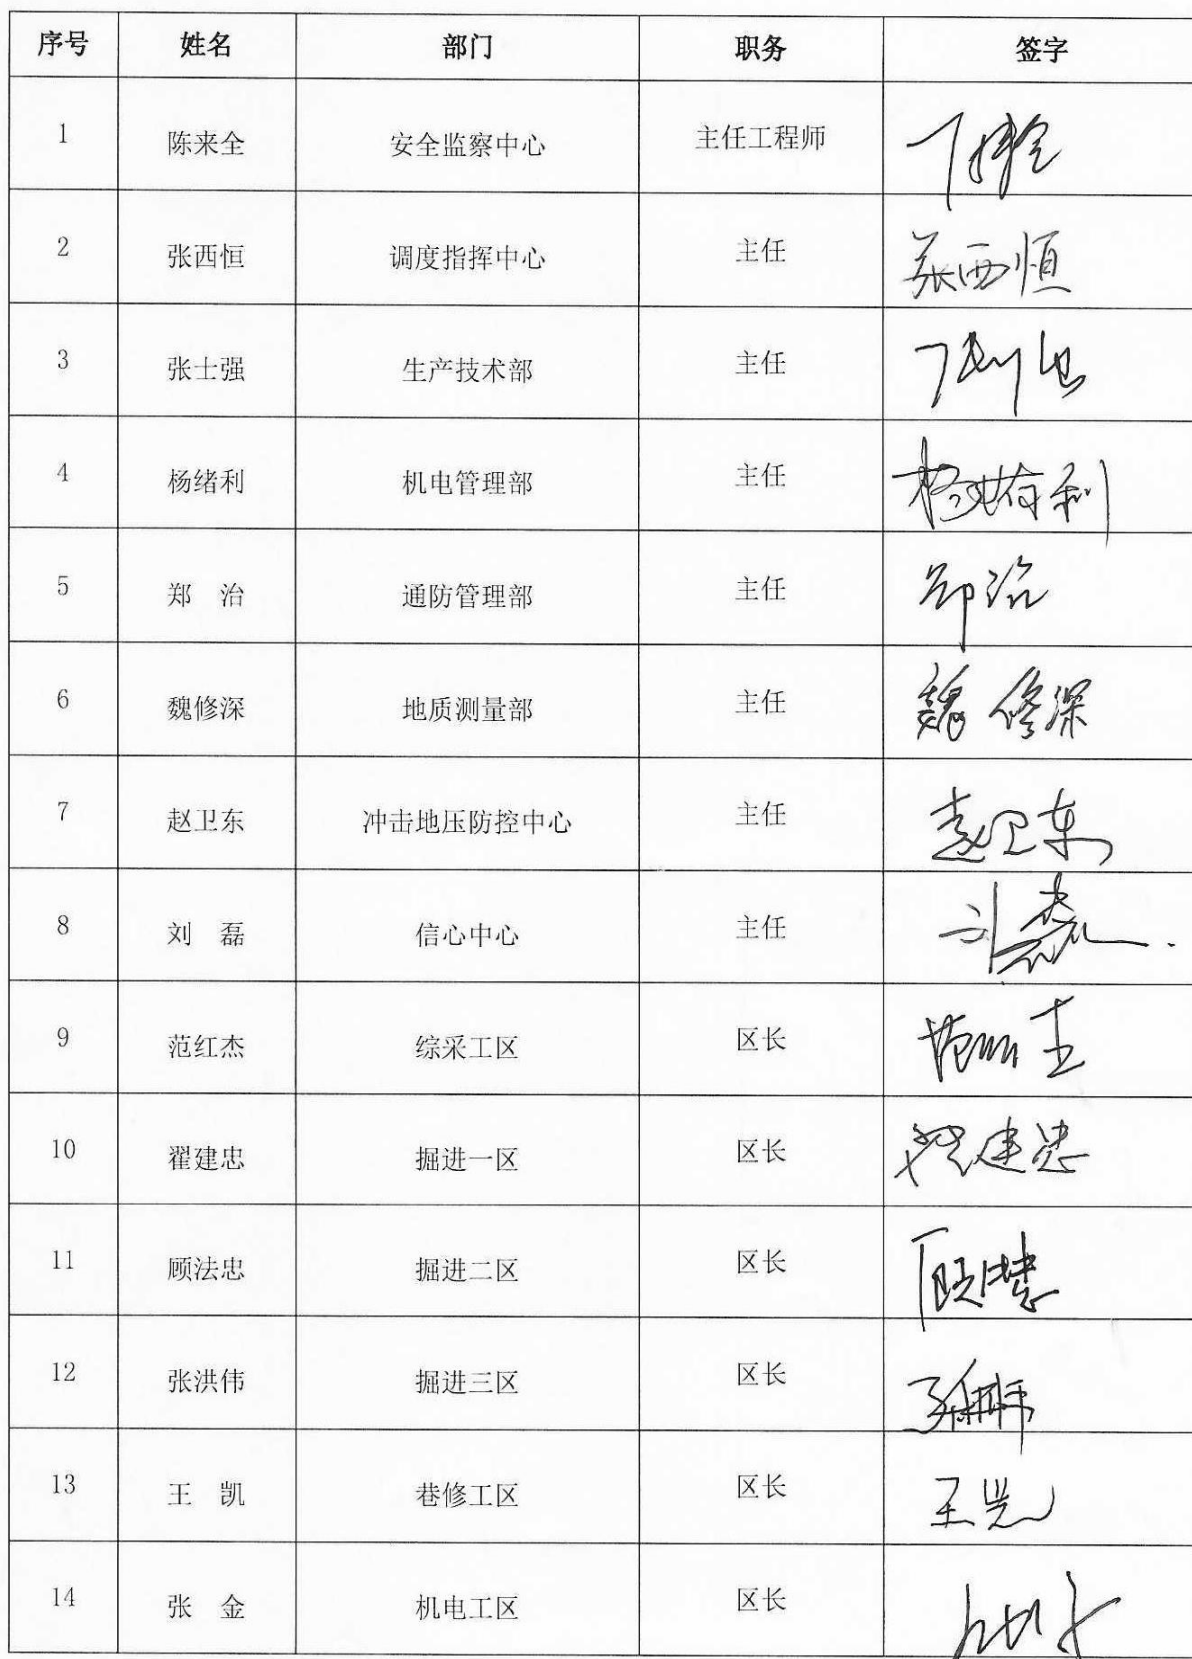 序号 姓名 部门 职务 签字
1 陈来全 安全监察中心 主任工程师
2 张西恒 调度指挥中心 主任 张西恒
3 张士强 生产技术部 主任
4 杨绪利 机电管理部 主任 杨绪利
5 郑 治 通防管理部 主任 郑治
6 魏修深 地质测量部 主任 魏修深
7 赵卫东 冲击地压防控中心 主任 赵卫东
8 刘 磊 信心中心 主任 刘磊
9 范红杰 综采工区 区长 范红杰
10 翟建忠 掘进一区 区长 翟建忠
11 顾法忠 掘进二区 区长 顾法忠
12 张洪伟 掘进三区 区长
13 王 凯 巷修工区 区长
14 张 金 机电工区 区长